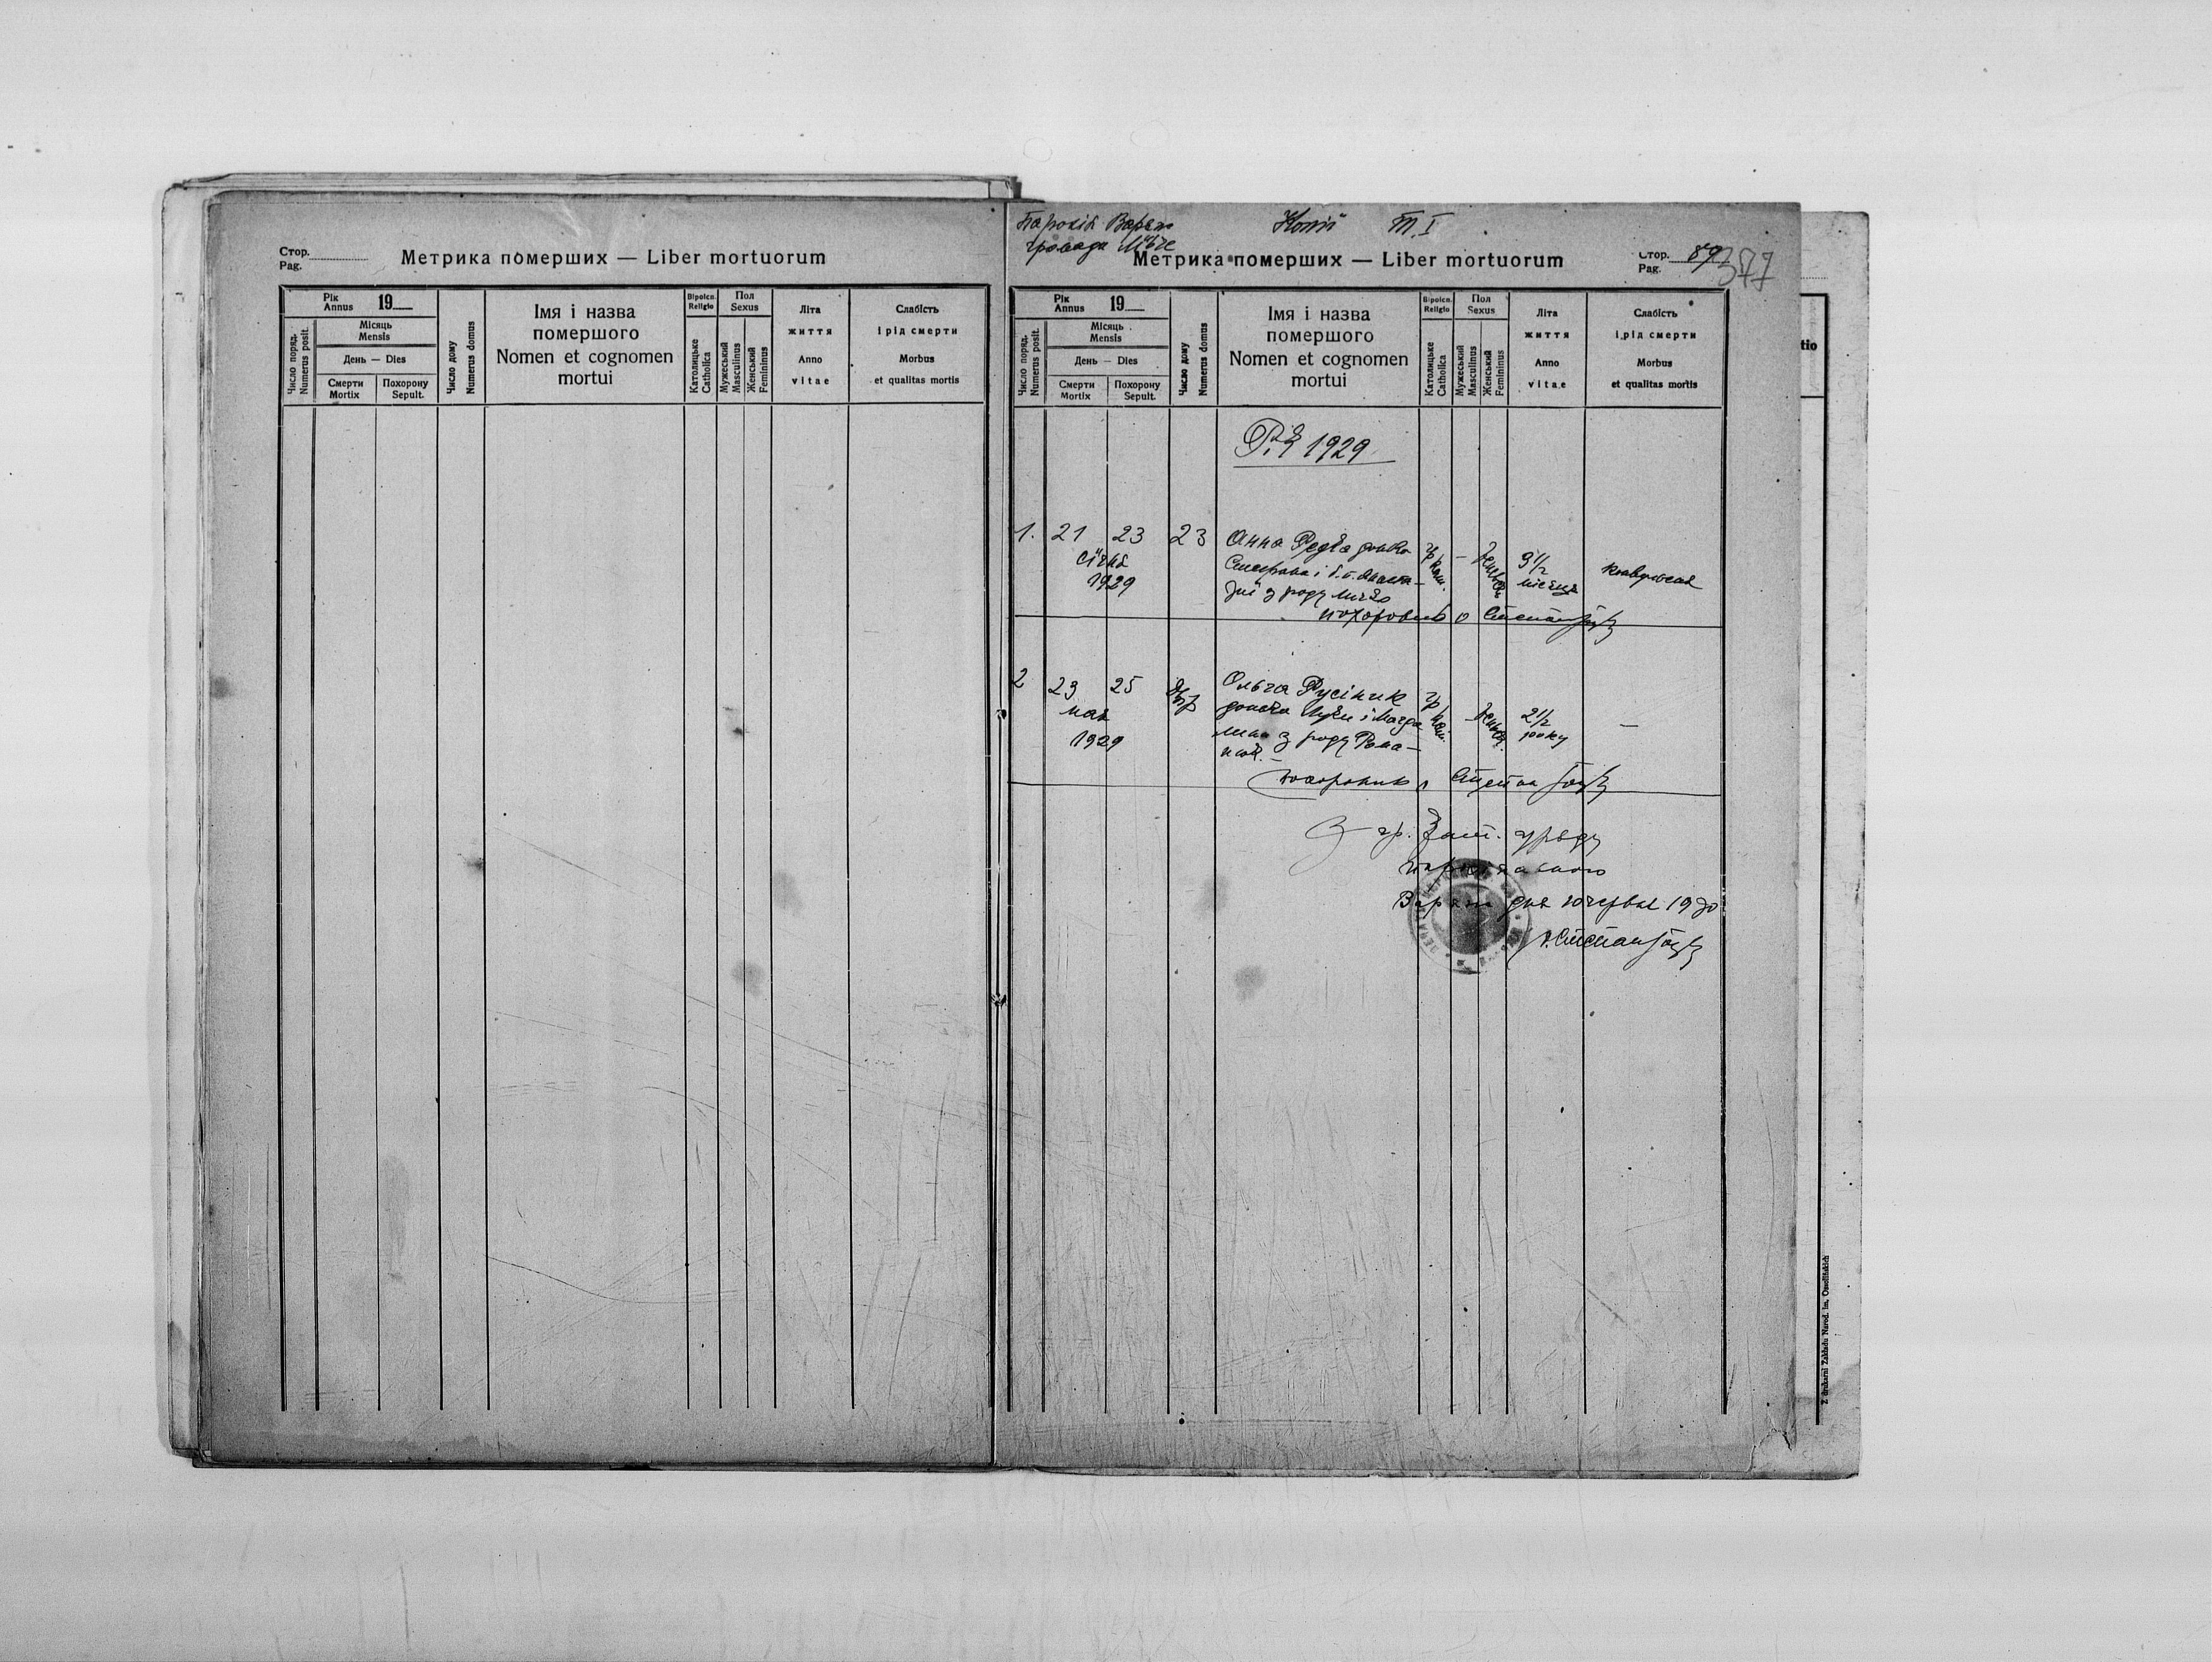 Стор.
Pag.
Метрика померших — Liber mortuorum
Рік
Annus
19
Місяць
Mensis
День — Dies
Число поряд.
Numerus posit.
Смерти
Mortix
Похорону
Sepult.
Число дому
Numerus domus
Імя і назва
помершого
Nomen et cognomen
mortui
Віроісп.
Religio
Католицьке
Catholica
Пол
Sexus
Мужеський
Masculinus
Женський
Femininus
Літа
життя
Anno
vitae
Слабість
і рід смерти
Morbus
et qualitas mortis
Парохія Варяж
громада
Копії Т. I
Метрика померших — Liber mortuorum
Стор.
Pag.
89
377
Рік
Annus
19
Місяць
Mensis
День — Dies
Число поряд.
Numerus posit.
Смерти
Mortix
Похорону
Sepult.
Число дому
Numerus domus
Імя і назва
помершого
Nomen et cognomen
mortui
Віроісп.
Religio
Католицьке
Catholica
Пол
Sexus
Мужеський
Masculinus
Женський
Femininus
Літа
життя
Anno
vitae
Слабість
і рід смерти
Morbus
et qualitas mortis
Рік 1929
1. 21 23 23 Анна донька
січня
1929
Стефана і
з роду
гр. кат.
—
женьск.
9 1/2
місяця
похоронив о Степан
2 23 25 Ольга Русіник
мая
1929
донька Луки і Магда
лини з роду Рома
гр. кат.
женьск.
2 1/2
року
—
похоронив о Степан
З гр. кат. уряду
парохіяльного
Варяж дня 10 червня 1930
о. Степан
Z drukarni Zakładu Narod. im. Ossolińskich
tio